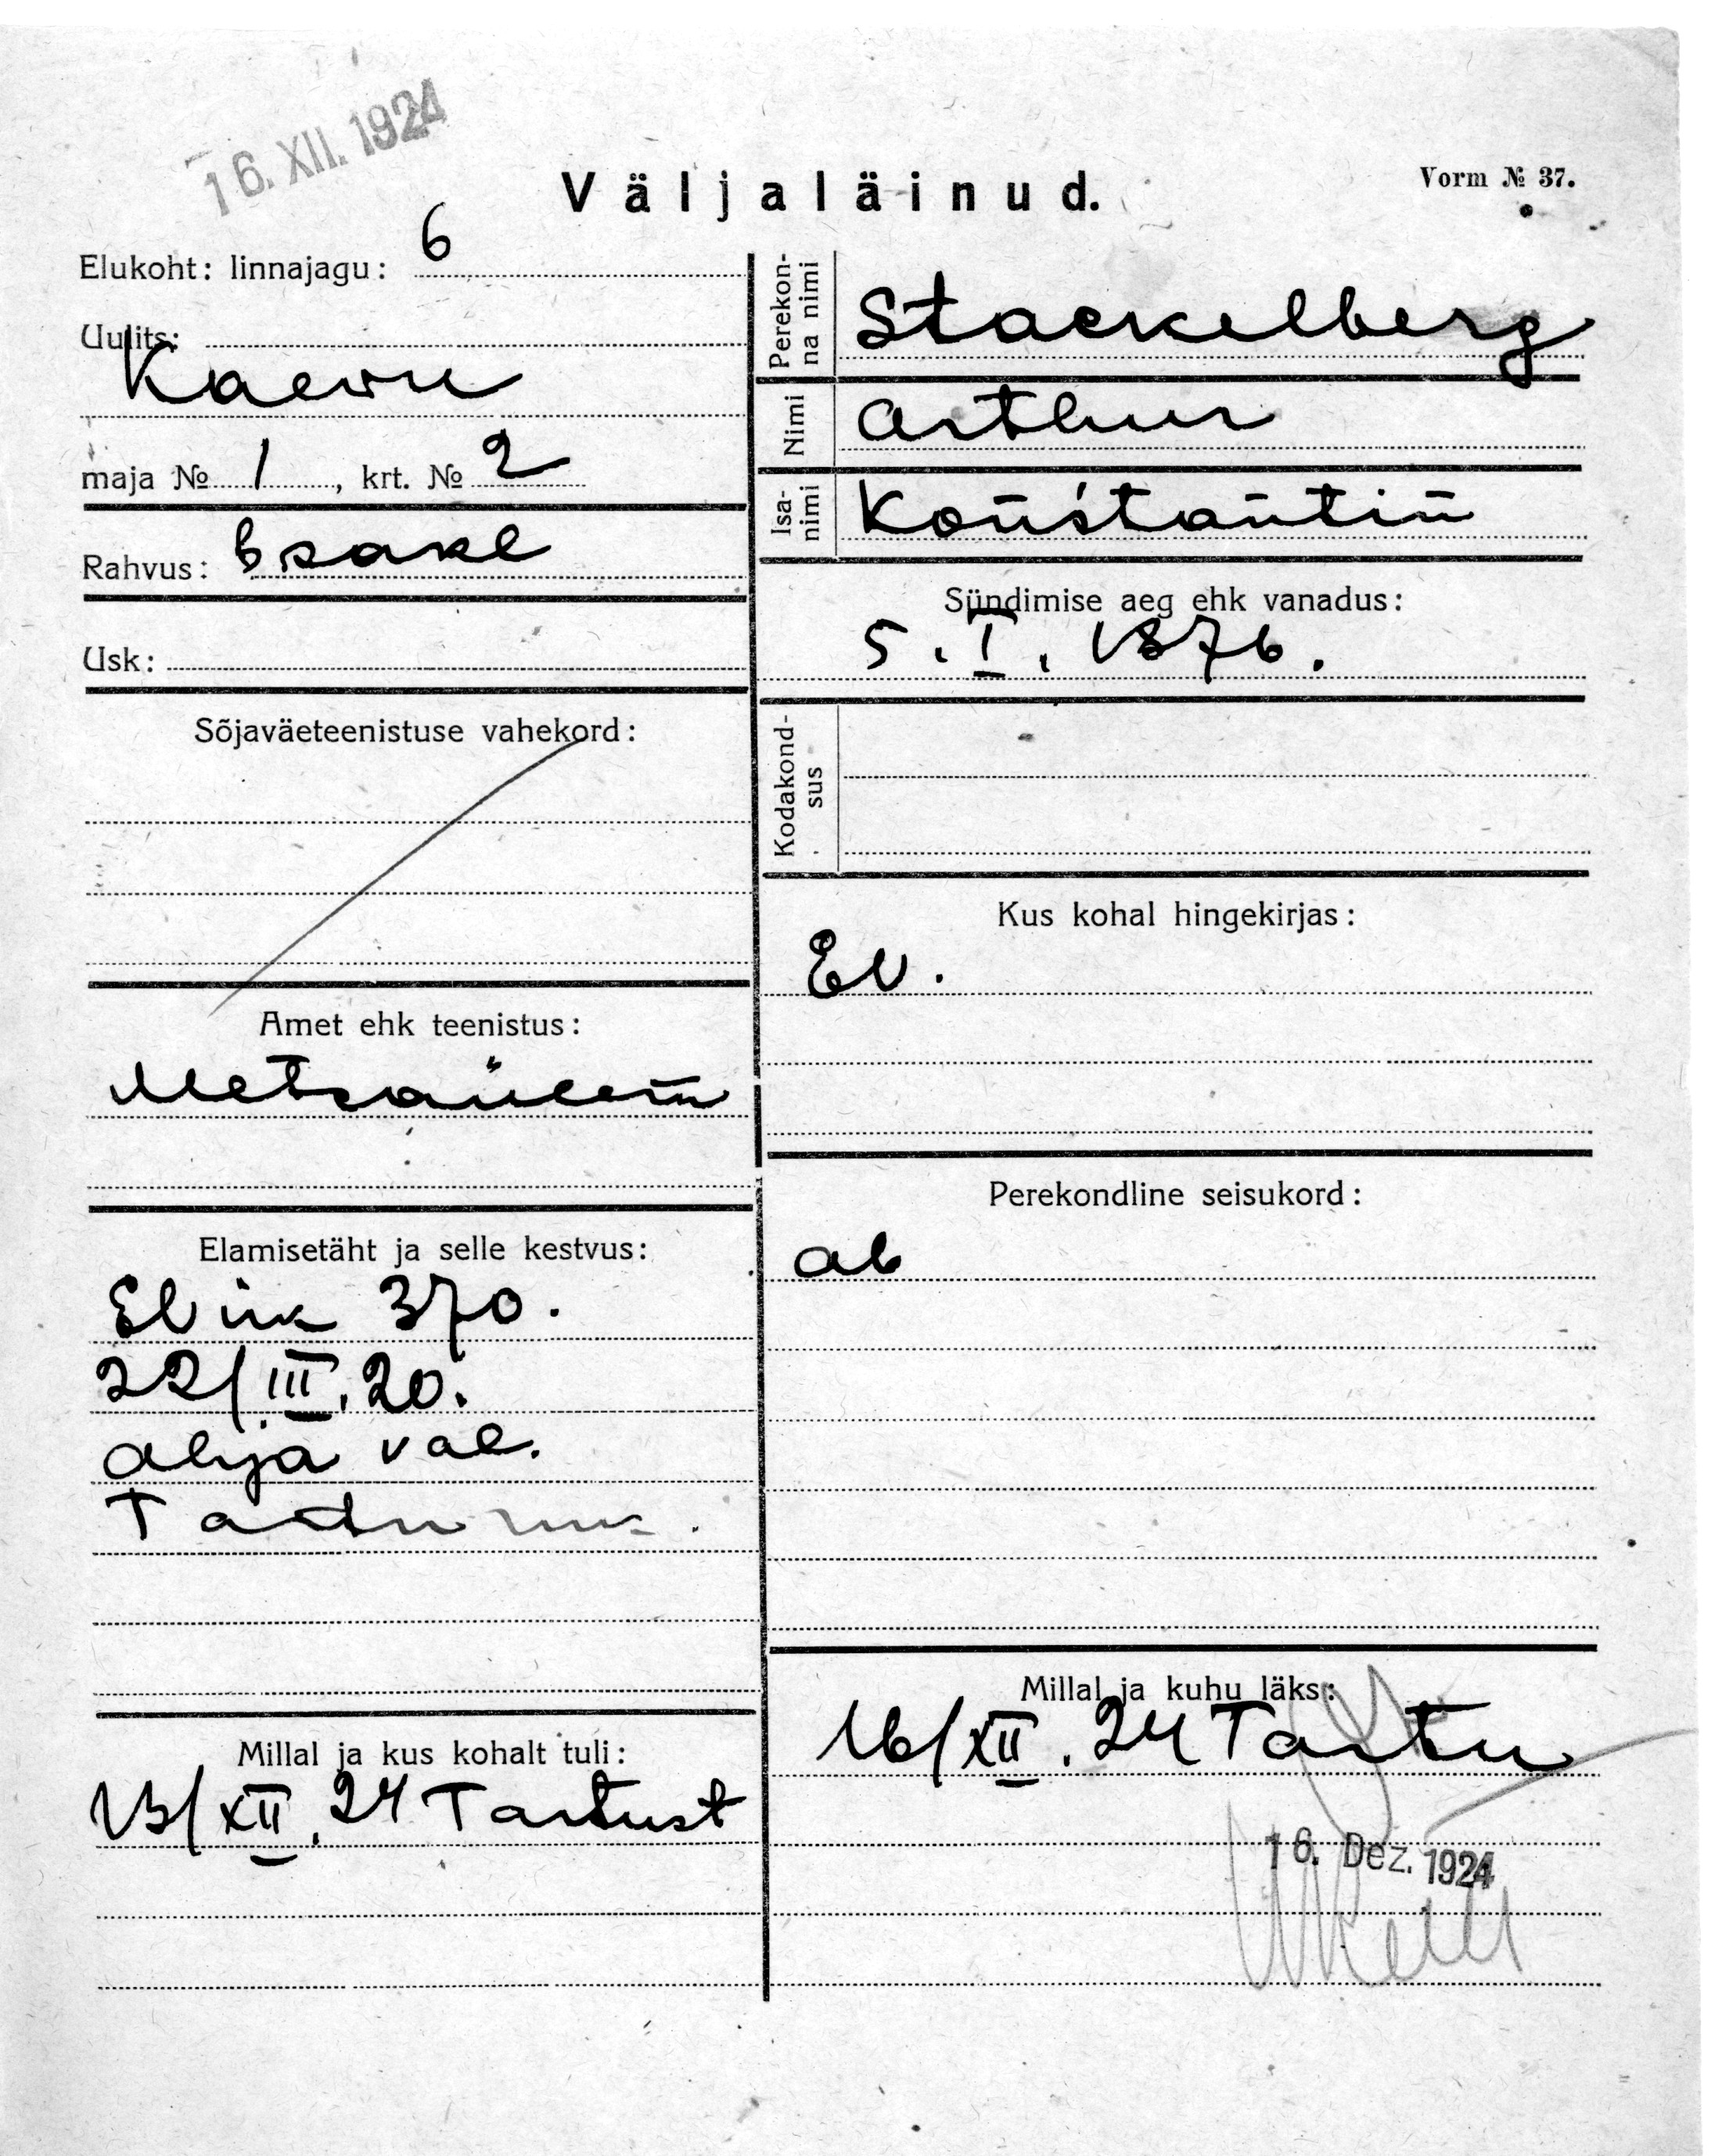 16. XII. 1924
Väljaläinud.
Vorm № 37.
Elukoht: linnajagu: 6
Uulits:
Kaevu
maja № 1, krt. № 2
Rahvus: bsakl
Usk:
Sõjaväeteenistuse vahekord:
Amet ehk teenistus:
Metsaülem
Elamisetäht ja selle kestvus:
Ev ük 370.
22/III.20.
Ahja val.
Tartu
Millal ja kus kohalt tuli:
13/XII.24 Tartust
Perekonna nimi
Stackelberg
Nimi
Arthur
Isanimi
Konstantin
Sündimise aeg ehk vanadus:
5.I.1876.
Kodakondsus
Kus kohal hingekirjas:
Ev.
Perekondline seisukord:
ab
Millal ja kuhu läks:
16/XII.24 Tartu
16. Dez. 1924